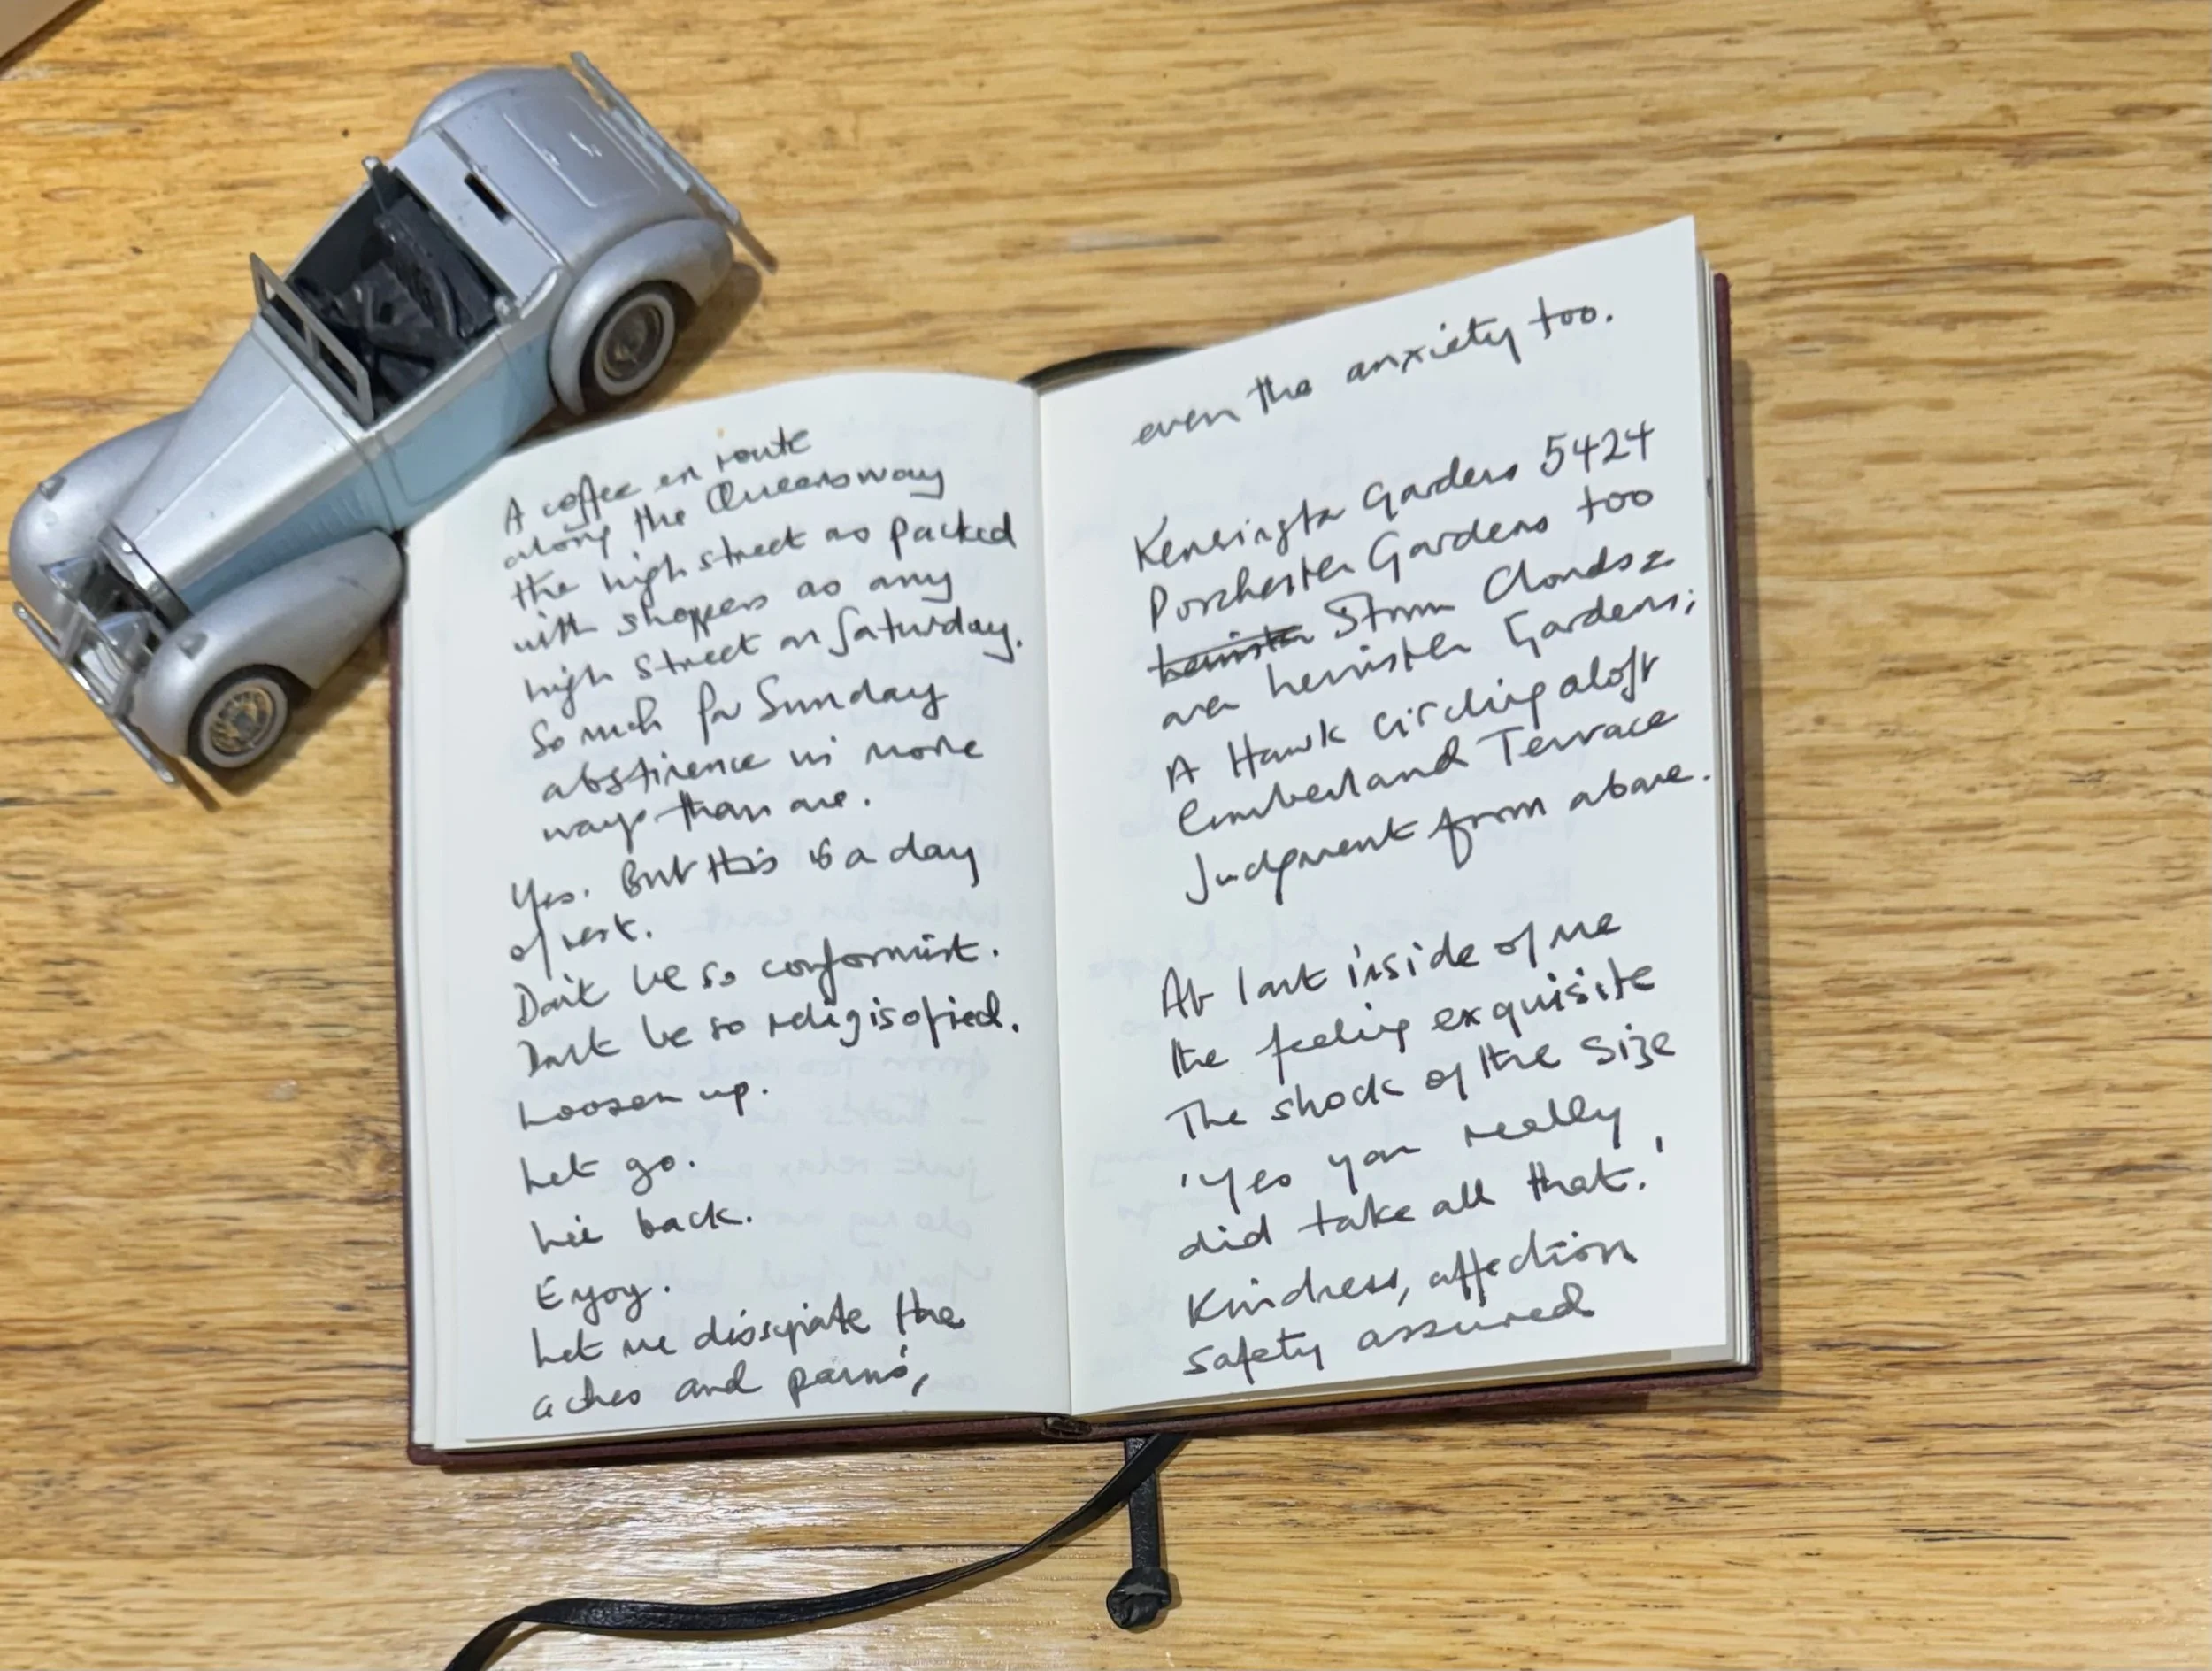 A coffee en route
along the Queensway
the high street as packed
with shoppers as any
high street on Saturday.
So much for Sunday
abstinence in more
ways than one.
Yes. But this is a day
of rest.
Don't be so conformist.
Don't be so religisofied.
Loosen up.
Let go.
Lie back.
Enjoy.
Let me dissipate the
aches and pains,
even the anxiety too.
Kensington Gardens 5424
Porchester Gardens too
Storm Clouds
over Leinster Gardens;
A Hawk circling aloft
Cumberland Terrace
Judgment from above.
At last inside of me
the feeling exquisite
The shock of the size
'Yes you really
did take all that.'
Kindness, affection
safety assured